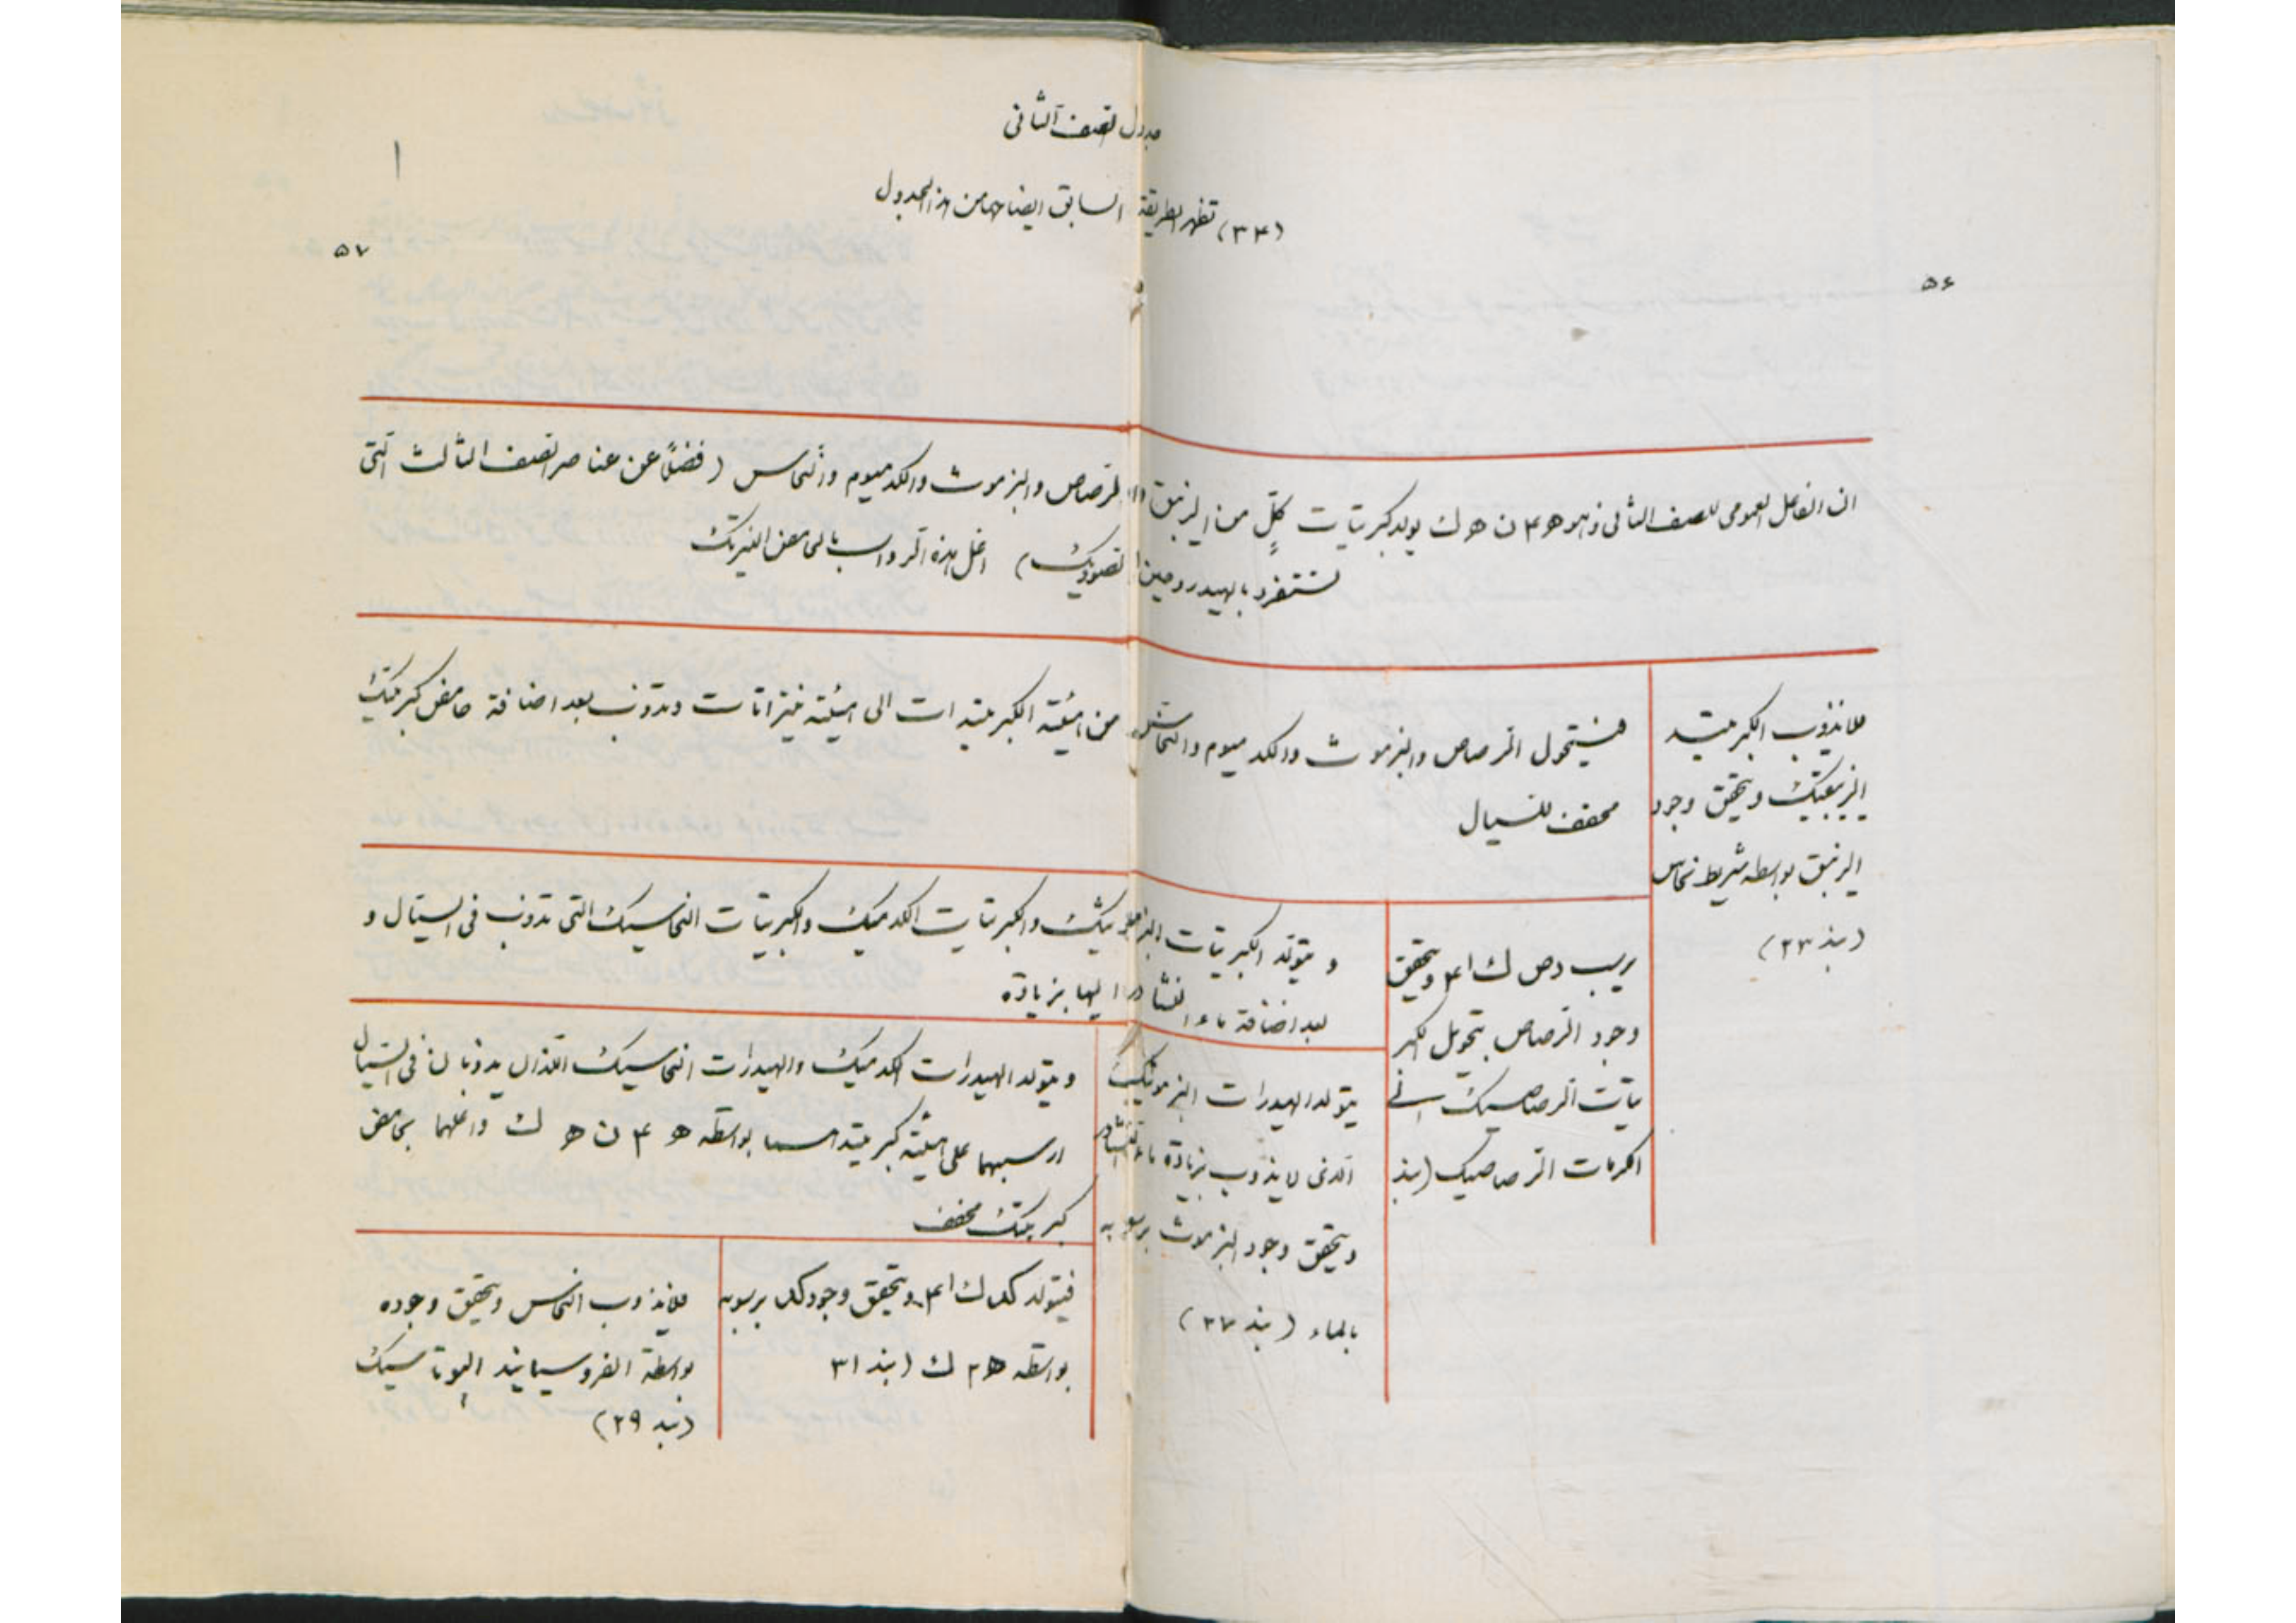 جدول الصنف الثاني
(٣٤) تظهر الطريقة السابق ايضاحها من هذا الجدول
٥٦
٥٧
ان الفاعل العمومى للصنف الثانى وهو ه ٤ ن ه ك يولد كبريتات كلٍّ من الزيبق والرصاص والبزموث والكدميوم والنحاس (فضلاً عن عناصر الصنف الثالث التى
ستنفرد بالهيدروجين ) اغل هذه الرواسب بالحامض النيتريك
فلا يذوب الكبريتيد
الزيبقيك ويتحقق وجود
الزيبق بواسطه شريط نحاس
(بند ٢٣)
فيستحول الرصاص والبزموث والكدميوم والنحاس من هيئة الكبريتيدات الى هيئة نيتراتات وتذوب بعد اضافة حامض كبريتيك
مخفف للسيال
يرسب رص ك ا ٤ ويتحقق
وجود الرصاص بتحويل الكبر
يتات الرصاصيك الى
الكرمات الرصاصيك (بند
و يتولد الكبريتات والكبريتات الكدميك والكبريتات النحاسيك التى تذوب فى السيال و
بعد اضافة ماء النشادر اليها بزيادة
يتولد الهيدرات البزموتيك
الذى لا يذوب بزيادة ماء النشادر
ويتحقق وجود البزموث برسوبه
بالماء (بند ٢٧)
ويتولد الهيدرات الكدميك والهيدرات النحاسيك اللذان يذوبان فى السيال
ارسبهما على هيئة كبريتيد بواسطه ه ٤ ن ه ك واغلهما بحامض
كبريتيك مخفف
فيتولد كد ك ا ٤ ويتحقق وجود كد برسوبه
بواسطه ه ٢ ك (بند ٣١
فلا يذوب النحاس ويتحقق وجوده
بواسطة الفروسيانيد البوتاسيك
(بند ٢٩)